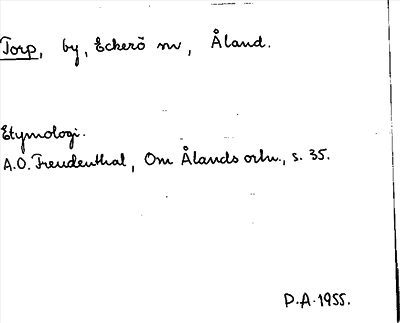 Torp, by, Eckerö sn, Åland.
Etymologi.
A.O. Freudenthal, Om Ålands ortn., s. 35.
P.A. 1955.